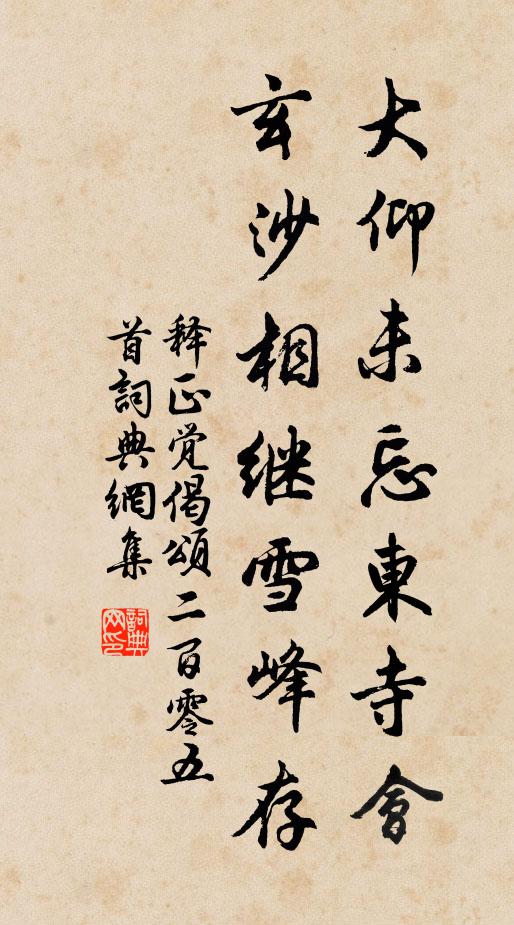 大仰未忘東寺會
玄沙相继雪峰存
释正觉偈頌二百零五
首詞典網集
詞典
网印